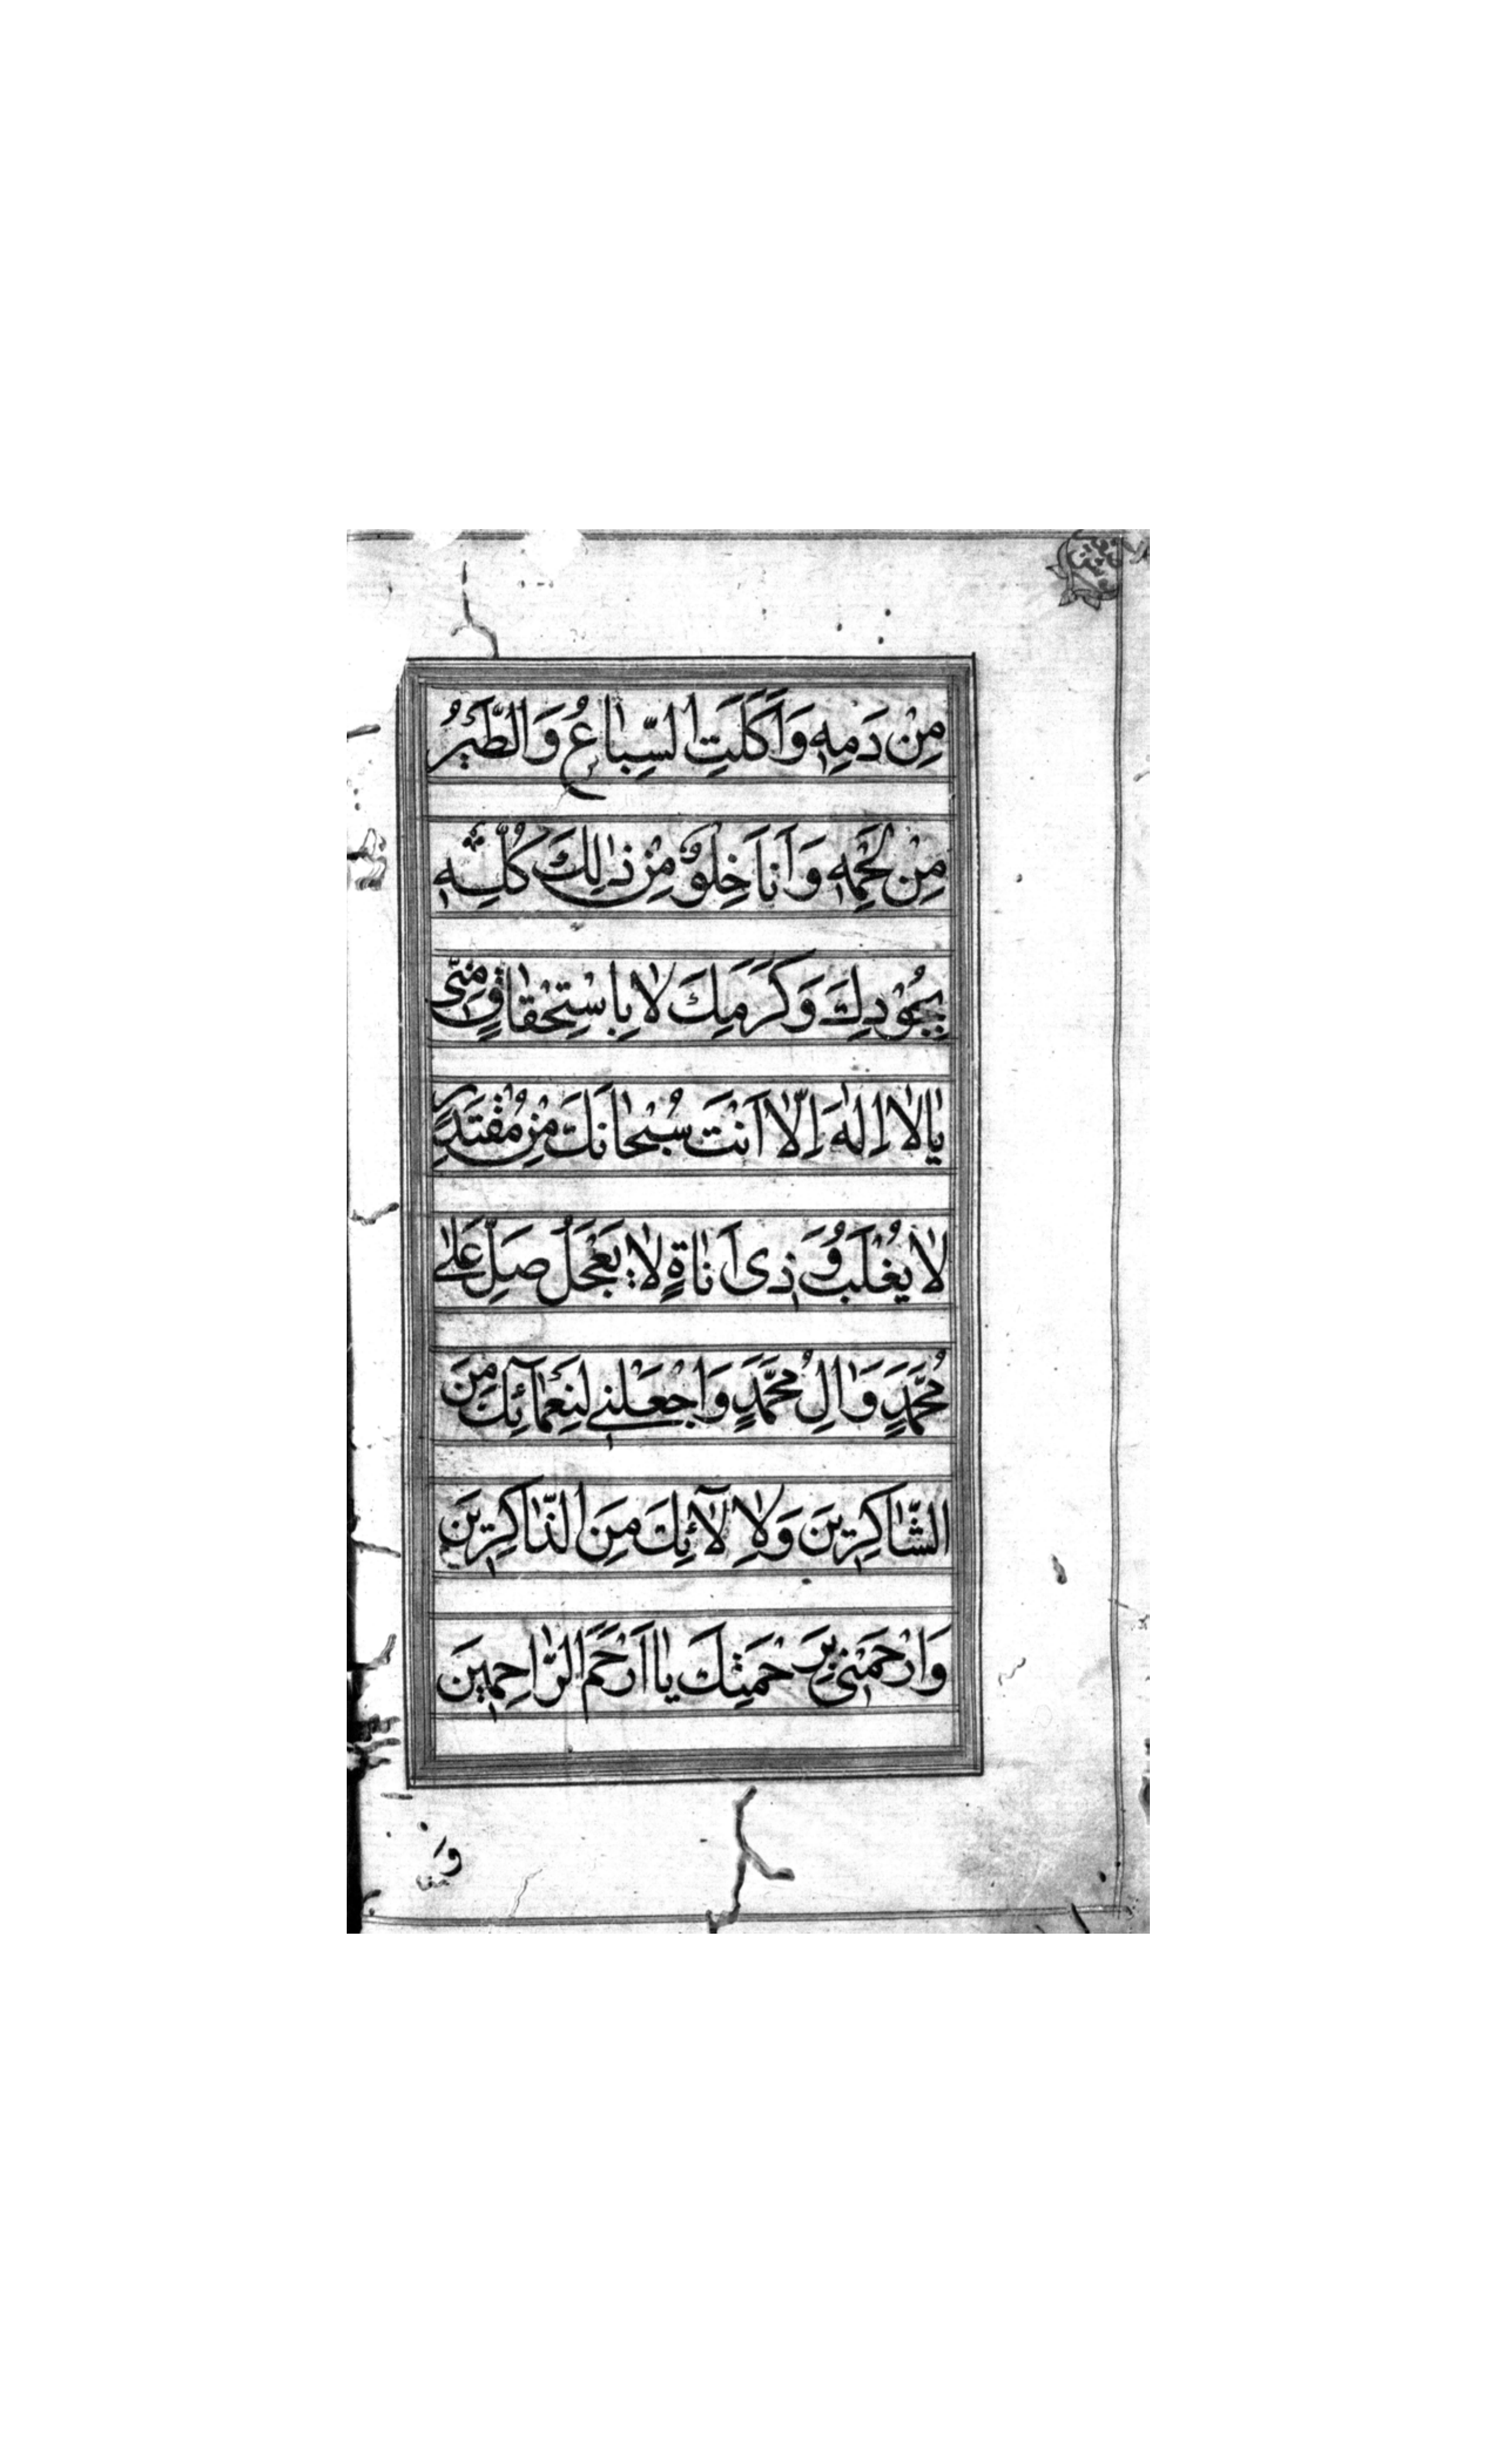 مِنْ دَمِهِ وَاَكَلَتِ السِّبَاعُ وَالطَّيْرُ
مِنْ لَحْمِهِ وَاَنَا خِلْوٌ مِنْ ذٰلِكَ كُلِّهِ
بِجُوْدِكَ وَكَرَمِكَ لَا بِاسْتِحْقَاقٍ مِنّى
يَا لَا اِلٰهَ اِلَّا اَنْتَ سُبْحَانَكَ مِنْ مُقْتَدِرٍ
لَا يُغْلَبُ وَ ذِى اَنَاةٍ لَا يَعْجَلُ صَلِّ عَلٰى
مُحَمَّدٍ وَاٰلِ مُحَمَّدٍ وَاجْعَلْنِي لِنَعْمَآئِكَ مِنَ
الشَّاكِرِينَ وَلِاٰلَآئِكَ مِنَ الذَّاكِرِينَ
وَارْحَمْنِى بِرَحْمَتِكَ يَا اَرْحَمَ الرَّاحِمِينَ
وَ